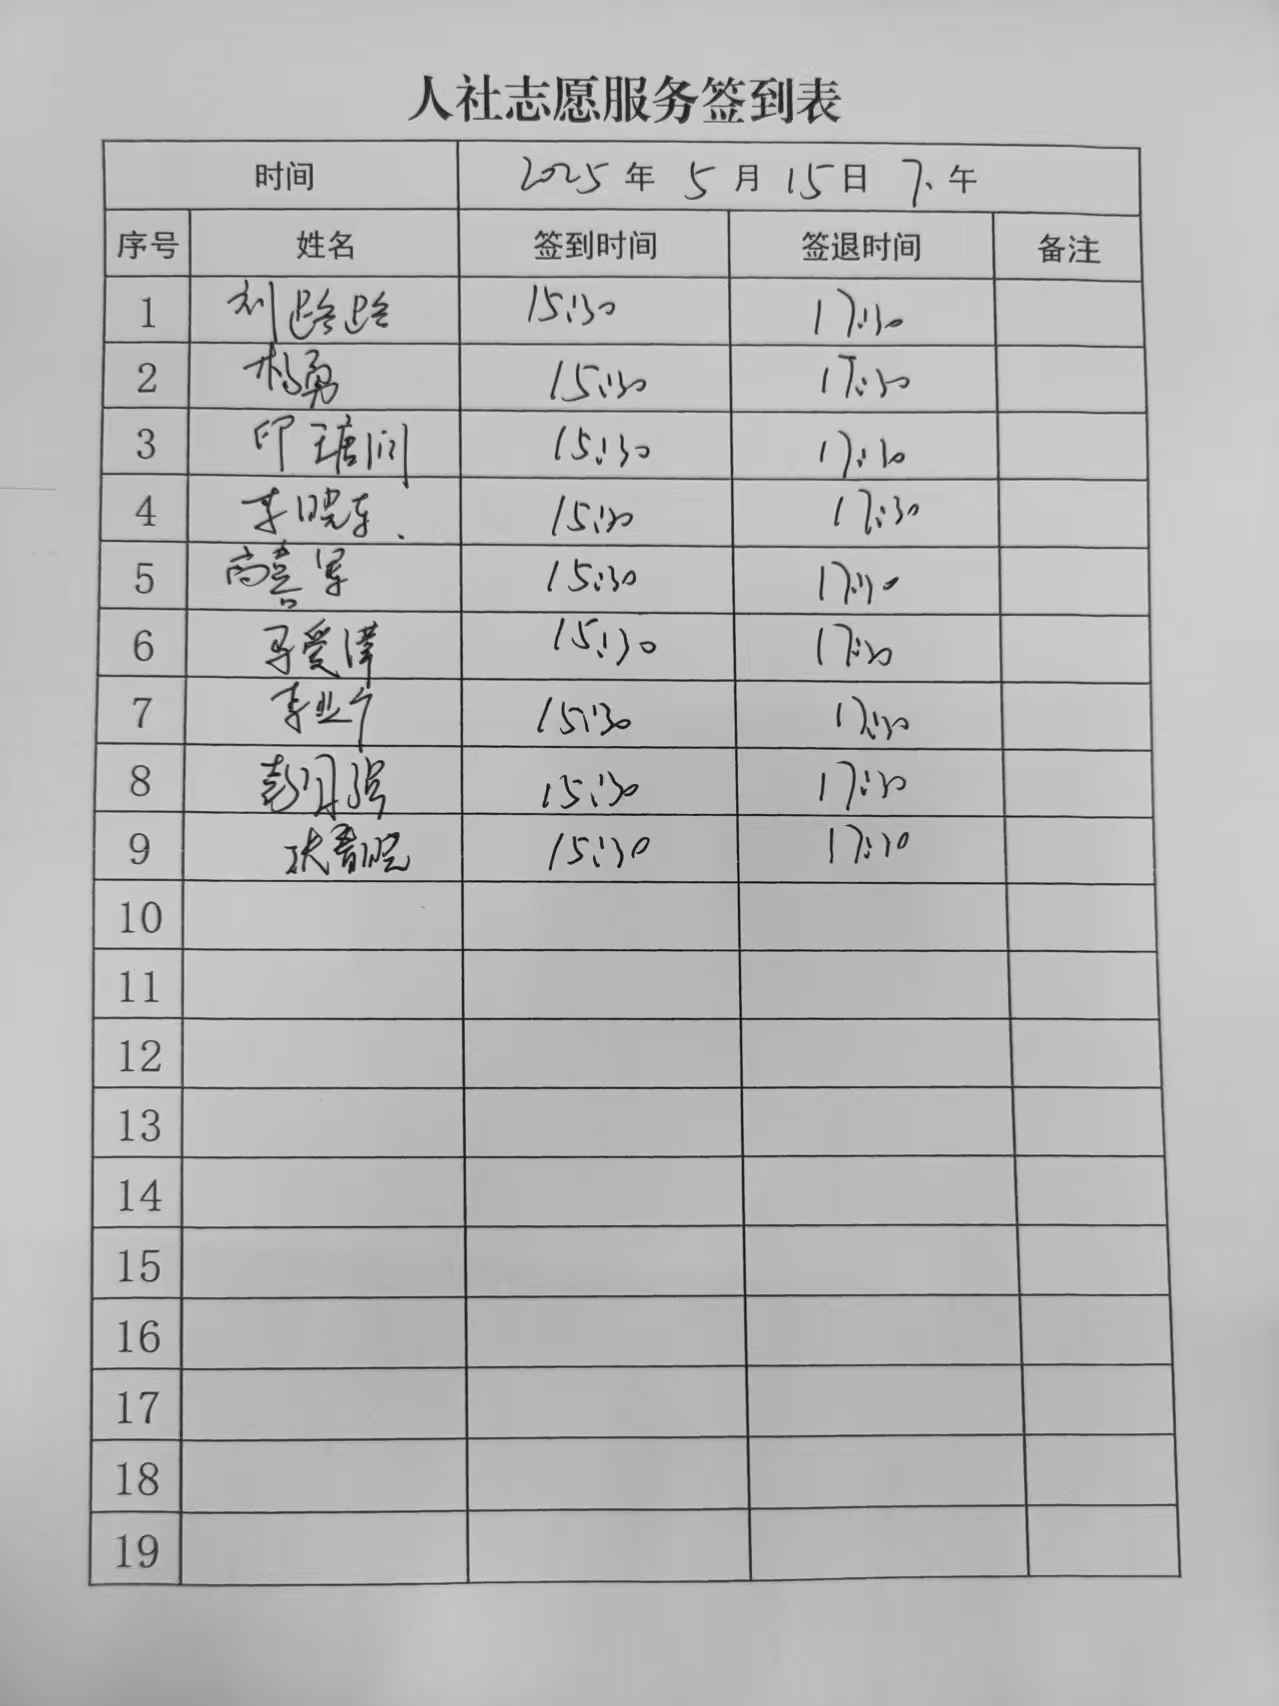 人社志愿服务签到表
时间 2025年 5月 15日 下午
序号 姓名 签到时间 签退时间 备注
1 刘路路 15:30 17:30
2 杨勇 15:30 17:30
3 印 15:30 17:30
4 李晓东 15:30 17:30
5 高喜军 15:30 17:30
6 马爱泽 15:30 17:30
7 李业 15:30 17:30
8 彭月强 15:30 17:30
9 15:30 17:30
10
11
12
13
14
15
16
17
18
19